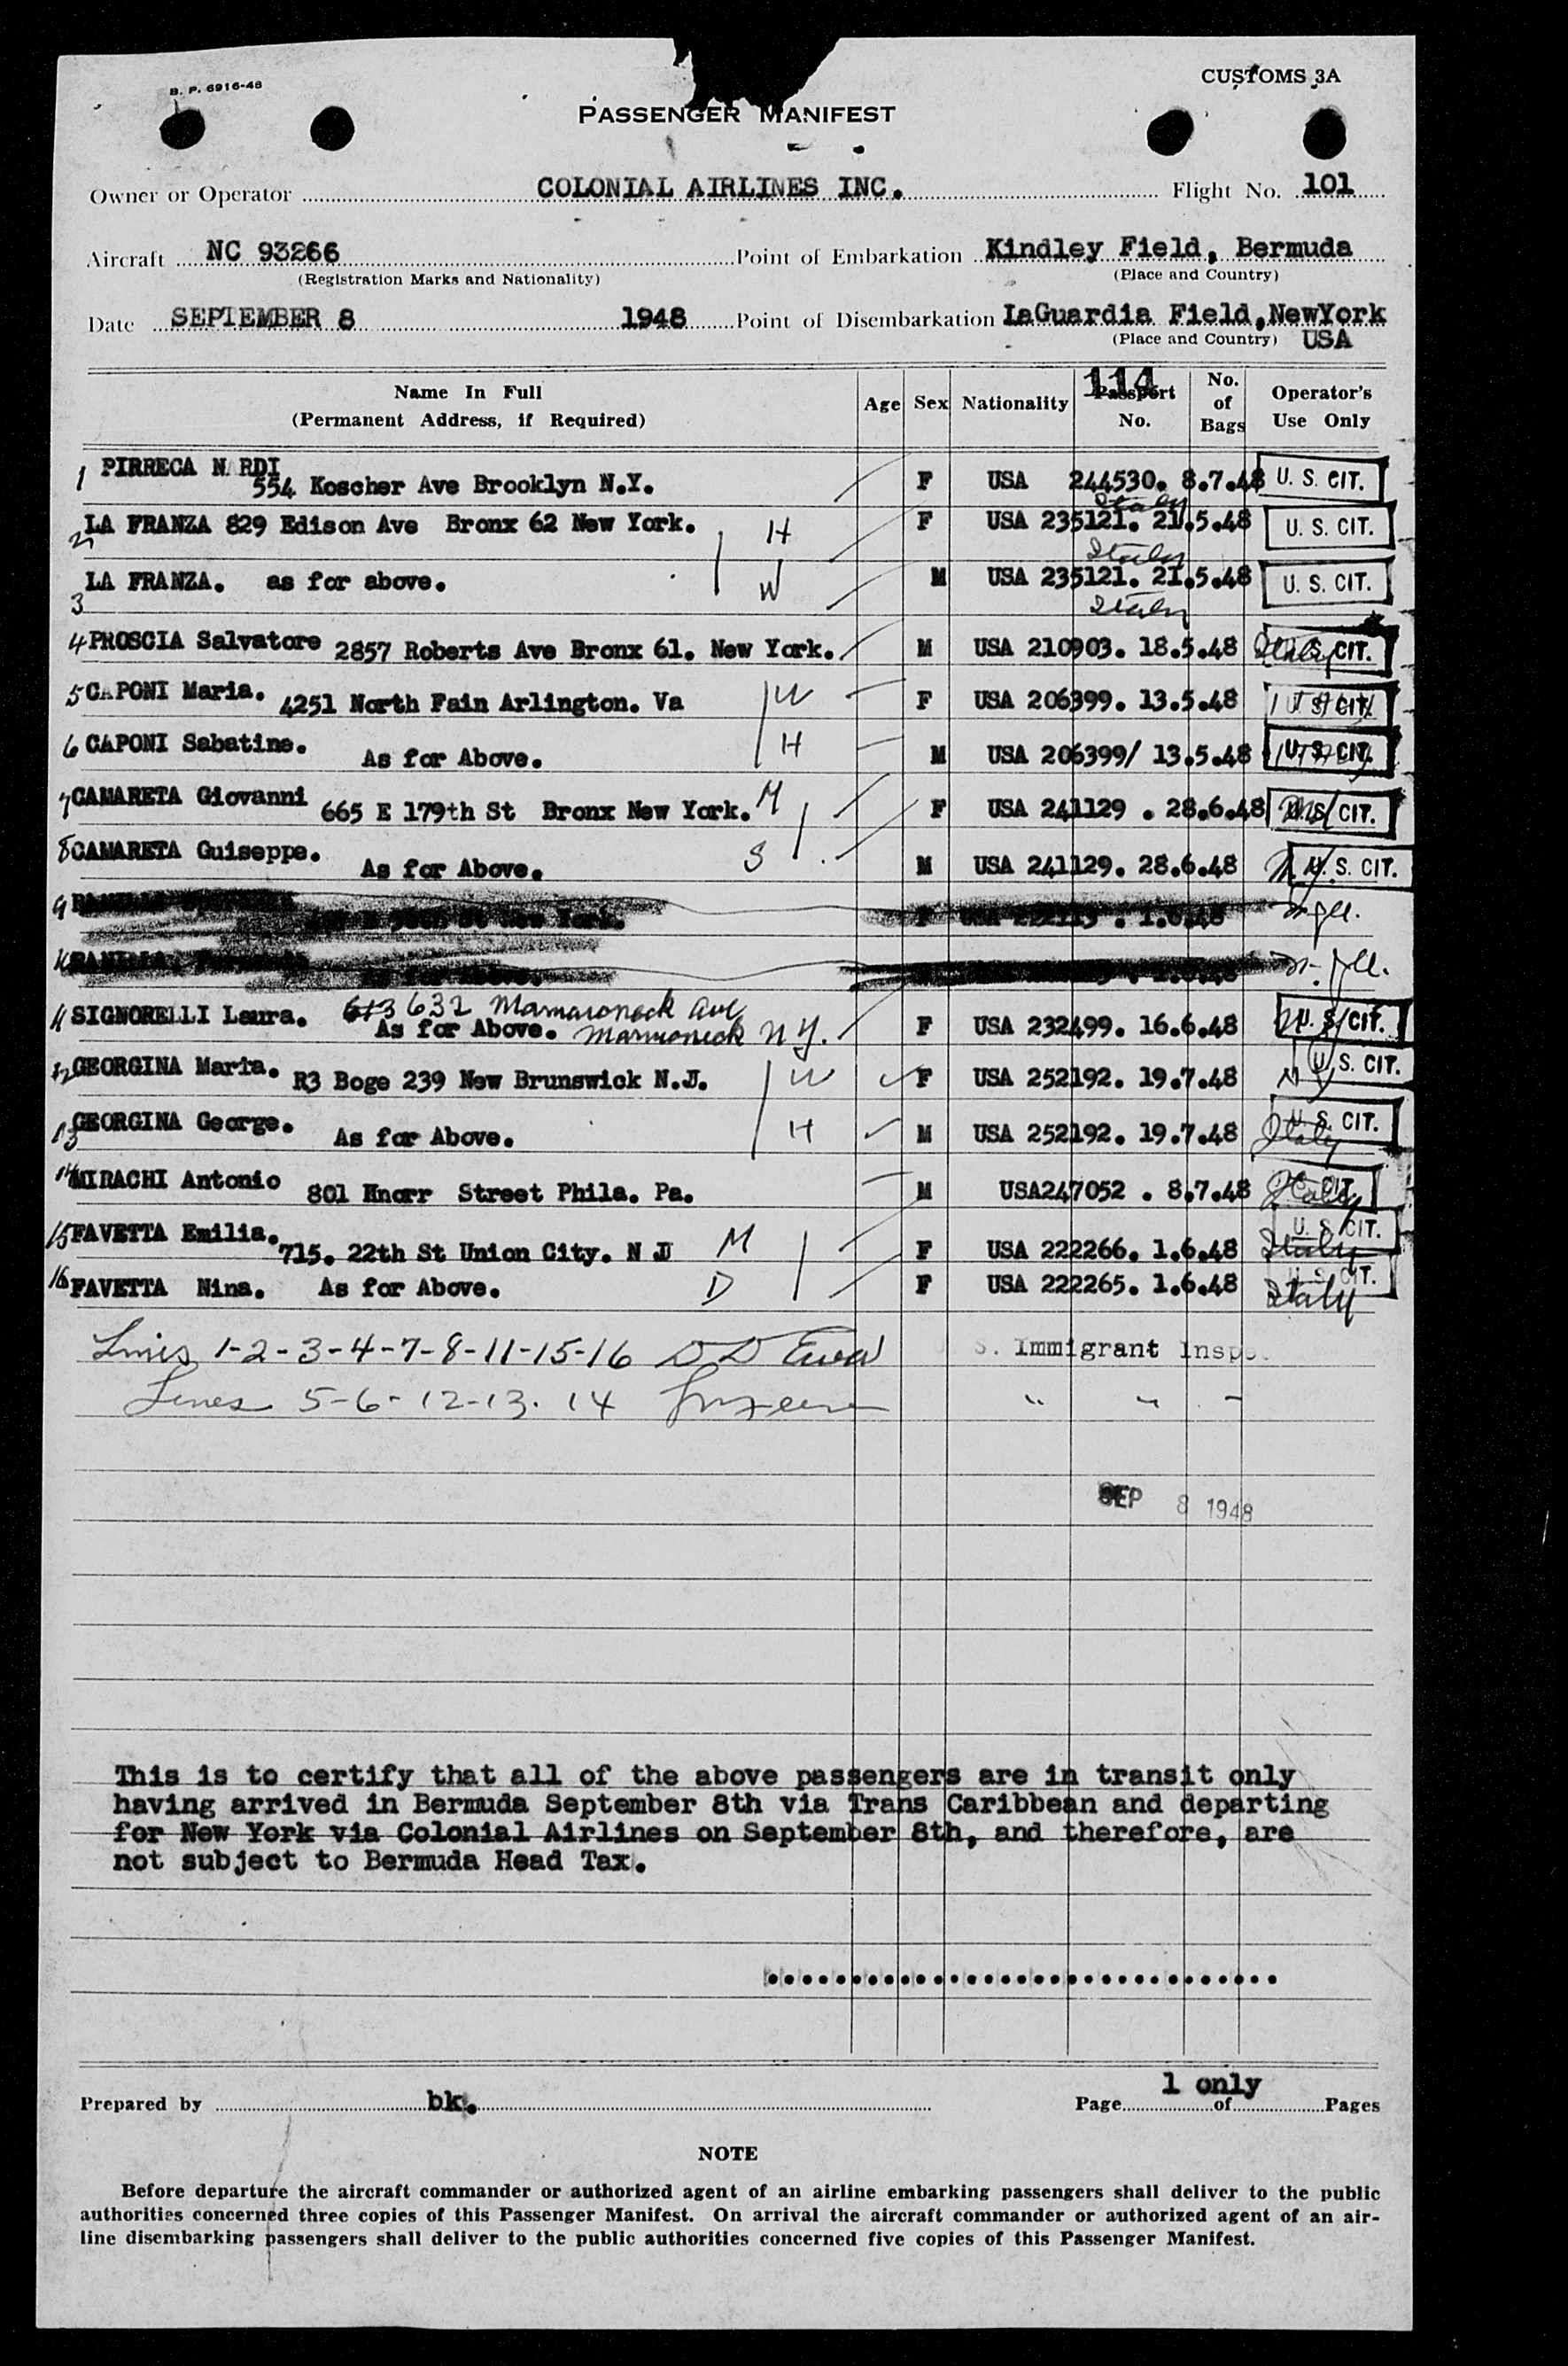 B. P. 6916-48
CUSTOMS 3A
PASSENGER MANIFEST
Owner or Operator COLONIAL AIRLINES INC. Flight No. 101
Aircraft NC 93266 Point of Embarkation Kindley Field, Bermuda
(Registration Marks and Nationality) (Place and Country)
Date SEPTEMBER 8 1948 Point of Disembarkation LaGuardia Field, NewYork
(Place and Country) USA
114
Name In Full (Permanent Address, if Required) Age Sex Nationality Passport No. No. of Bags Operator's Use Only
1 PIRRECA N RDI
554 Koscher Ave Brooklyn N.Y. F USA 244530. 8.7.48 U. S. CIT.
Italy
2 LA FRANZA 829 Edison Ave Bronx 62 New York. H F USA 235121. 21.5.48 U. S. CIT.
Italy
3 LA FRANZA. as for above. W M USA 235121. 21.5.48 U. S. CIT.
Italy
4 PROSCIA Salvatore 2857 Roberts Ave Bronx 61. New York. M USA 210903. 18.5.48 Italy U. S. CIT.
5 CAPONI Maria. 4251 North Fain Arlington. Va W F USA 206399. 13.5.48 U. S. CIT.
6 CAPONI Sabatino. As for Above. H M USA 206399/ 13.5.48 U. S. CIT.
7 CAMARETA Giovanni 665 E 179th St Bronx New York. M F USA 241129 . 28.6.48 U. S. CIT.
8 CAMARETA Guiseppe. As for Above. S M USA 241129. 28.6.48 U. S. CIT.
9 St New York. F USA . 1.6.48
As for Above.
613 632 Mamaroneck Ave
11 SIGNORELLI Laura. As for Above. Mamroneck N Y. F USA 232499. 16.6.48 U. S. CIT.
12 GEORGINA Maria. R3 Boge 239 New Brunswick N.J. W F USA 252192. 19.7.48 N Y U. S. CIT.
13 GEORGINA George. As for Above. H M USA 252192. 19.7.48 Italy U. S. CIT.
14 MIRACHI Antonio 801 Knorr Street Phila. Pa. M USA247052 . 8.7.48 Italy CIT.
15 FAVETTA Emilia. 715. 22th St Union City. N J M F USA 222266. 1.6.48 Italy U. S. CIT.
16 FAVETTA Nina. As for Above. D F USA 222265. 1.6.48 Italy U. S. CIT.
Lines 1-2-3-4-7-8-11-15-16 D D S. Immigrant Insp
Lines 5-6-12-13. 14 " " -
SEP 8 1948
This is to certify that all of the above passengers are in transit only
having arrived in Bermuda September 8th via Trans Caribbean and departing
for New York via Colonial Airlines on September 8th, and therefore, are
not subject to Bermuda Head Tax.
Prepared by bk. Page 1 only of Pages
NOTE
Before departure the aircraft commander or authorized agent of an airline embarking passengers shall deliver to the public
authorities concerned three copies of this Passenger Manifest. On arrival the aircraft commander or authorized agent of an air-
line disembarking passengers shall deliver to the public authorities concerned five copies of this Passenger Manifest.